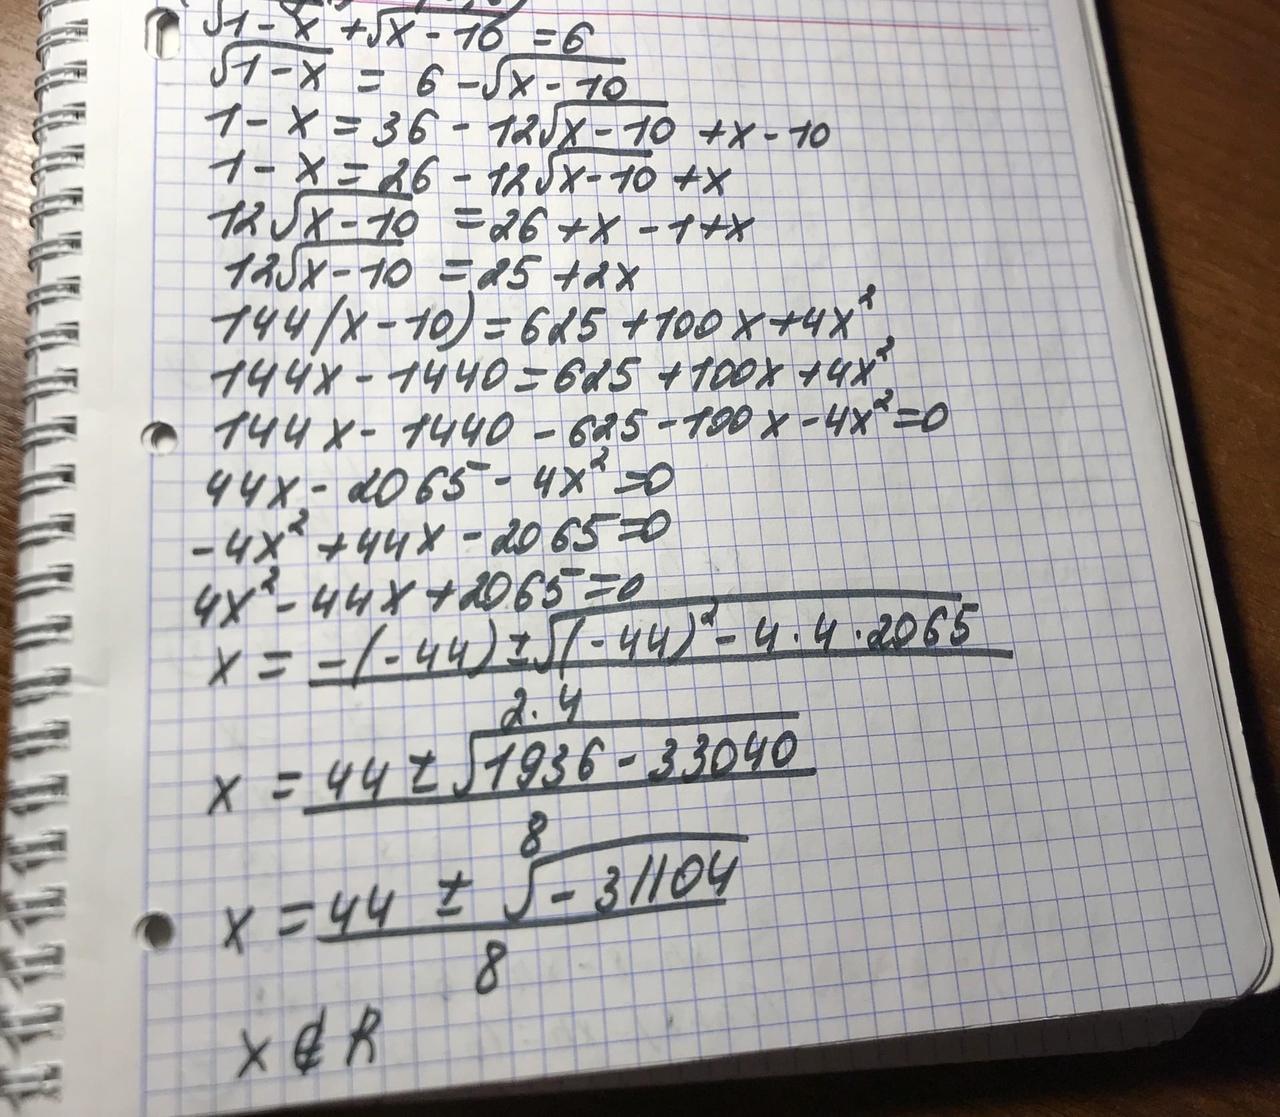 √1-x + √x-10 = 6
√1-x = 6 - √x-10
1-x = 36 - 12√x-10 + x - 10
1-x = 26 - 12√x-10 + x
12√x-10 = 26 + x - 1 + x
12√x-10 = 25 + 2x
144(x-10) = 625 + 100x + 4x²
144x - 1440 = 625 + 100x + 4x²
144x - 1440 - 625 - 100x - 4x² = 0
44x - 2065 - 4x² = 0
-4x² + 44x - 2065 = 0
4x² - 44x + 2065 = 0
x = -(-44) ± √(-44)² - 4·4·2065
2·4
x = 44 ± √1936 - 33040
8
x = 44 ± √-31104
8
x ∉ R